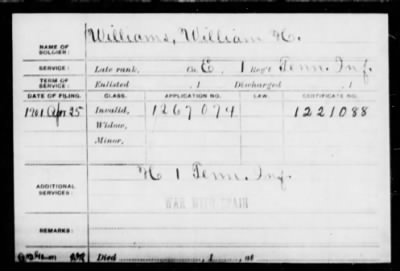 Williams, William H.
NAME OF SOLDIER:
SERVICE: Late rank, Co. E, 1 Reg't Tenn. Inf.
TERM OF SERVICE: Enlisted , 1 Discharged , 1
DATE OF FILING. CLASS. APPLICATION NO. LAW. CERTIFICATE NO.
1901 Apr 25 Invalid, 1267074 1221088
Widow,
Minor,
ADDITIONAL SERVICES: H 1 Tenn. Inf.
WAR WITH SPAIN
REMARKS:
Died , 1 , at